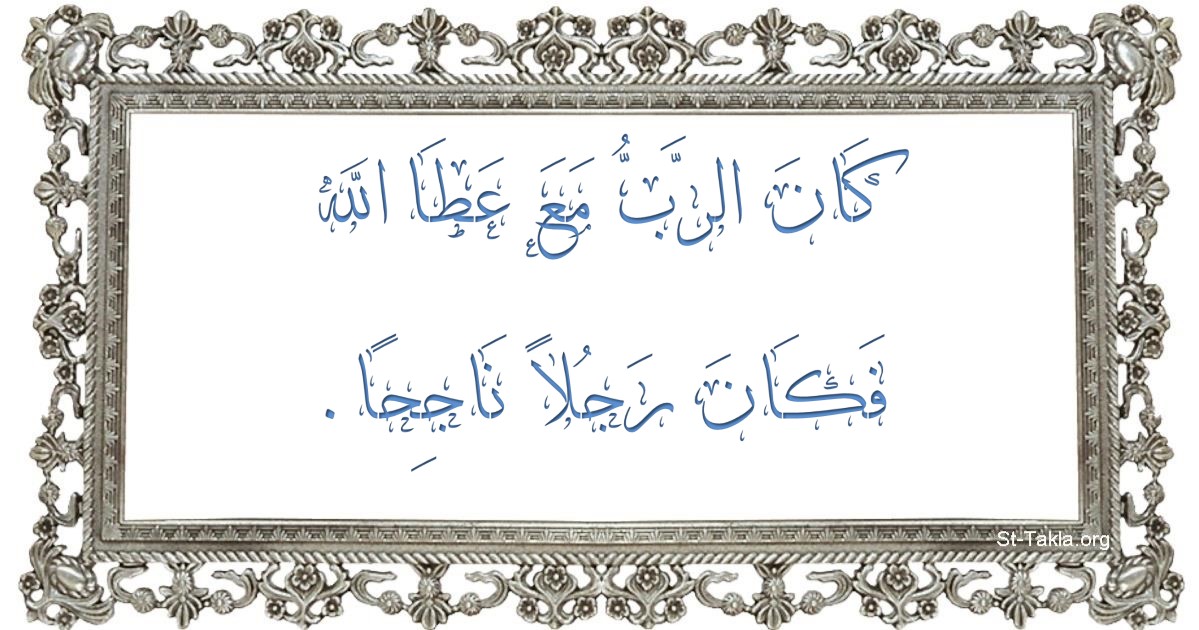 كَانَ الرَّبُّ مَعَ عَطَا اللَّهْ
فَكَانَ رَجُلاً نَاجِحًا .
St-Takla.org